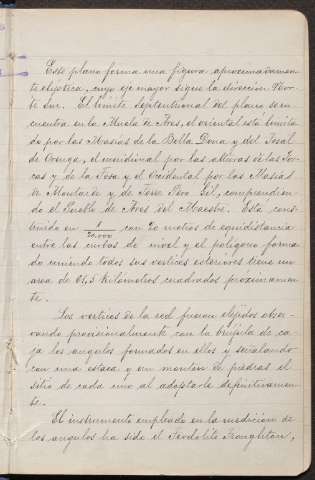 Este plano forma una figura aproximadamen-
te eliptica, cuyo eje mayor sigue la direccion Nor-
te Sur. El limite septentrional del plano se en-
cuentra en la Muela de Ares, el oriental está limita-
do por las Masias de la Bella Dona y del Tosal
de Oronga, el meridional por las alturas de las Ro-
cas y de la Tosa y el Occidental por las Masias
de Montalvo y de Torre Pere Gil, comprendien-
do el Pueblo de Ares del Maestre. Está cons-
truido en 1/20.000 con 20 metros de equidistancia
entre las curbas de nivel y el poligono forma-
do uniendo todos sus vertices esteriores tiene un
area de 61,5 kilometros cuadrados próximamen-
te.
Los vertices de la red fueron elejidos obser-
vando provisionalmente con la brújula de ca-
ja los angulos formados en ellos y señalando
con una estaca y un monton de piedras el
sitio de cada uno al adoptarle definitivamen-
te.
El instrumento empleado en la medicion de
los angulos ha sido el Teodolito Troughton,